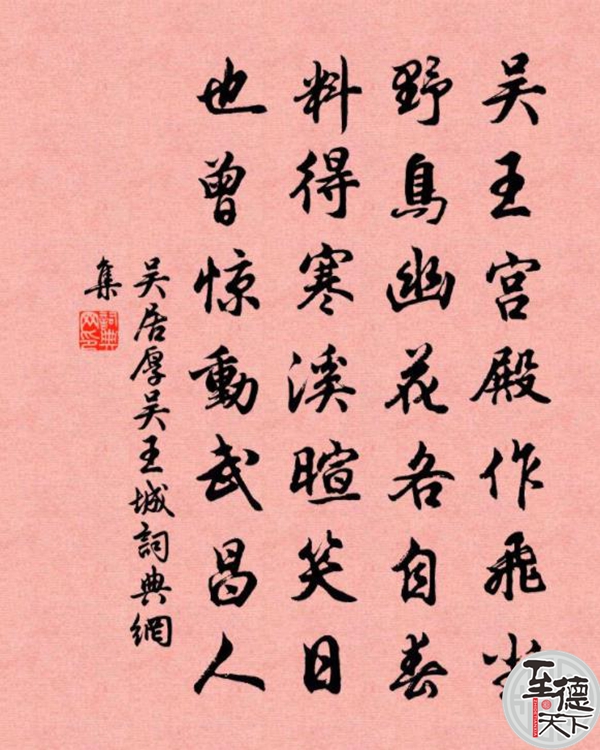 吴王宫殿作飛尘
野鳥幽花各自春
料得寒溪暄笑日
也曾惊動武昌人
吴居厚吴王城詞典網
集
詞典
网印
至德
天下